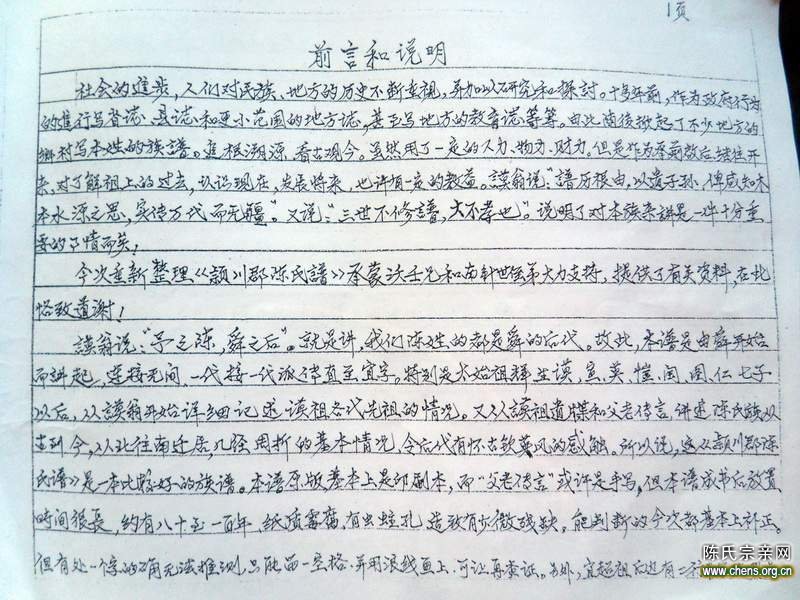 1页
前言和说明
社会的進步，人们对民族、地方的历史不断重视，并加以研究和探討。十多年前，作为政府行为
的進行写省誌、县誌和更小范围的地方誌，甚至写地方的教育誌等等。由此随後掀起了不少地方的
鄉村写本姓的族譜。追根溯源，看古观今。虽然用了一定的人力、物力、财力。但是作为承前啟后，继往开
来，对了解祖上的过去，认识现在，发展将来，也许有一定的教益。謨翁说：“譜历根由，以遗子孙，俾咸知木
本水源之思，实传万代而无疆”。又说：“三世不修譜，大不孝也”。说明了对本族来讲是一件十分重
要的事情而矣！
今次重新整理《颍川郡陈氏譜》承蒙沃壬兄和南轩世弟大力支持，提供了有关资料，在此
恪致道谢！
謨翁说：“予之陈，舜之后”。就是讲，我们陈姓的都是舜的后代。故此，本谱是由舜开始
而讲起，连接无间、一代接一代派传直至宜字。特别是
以后，从謨翁开始详细记述谟祖各代先祖的情况。又从謨祖遗牒和父老传言，讲述陈氏族从
古到今，从北往南迁居，几经周折的基本情况，令后代有怀古钦慕风的感触。所以说，这《颍川郡陈
氏譜》是一本比較好的族谱。本谱原版基本上是印刷本，而“父老传言”或许是手写，但本谱成书后放置
时间很長，約有八十至一百年，纸质霉腐，有虫蛀孔，造致有少微残缺。能判断的今次都基本上补正。
但有处一字的确无法推测，只能留一空格，并用浪线画上，可让再查证。另外，宜超祖后也有二
陈氏宗亲网
www.chens.org.cn